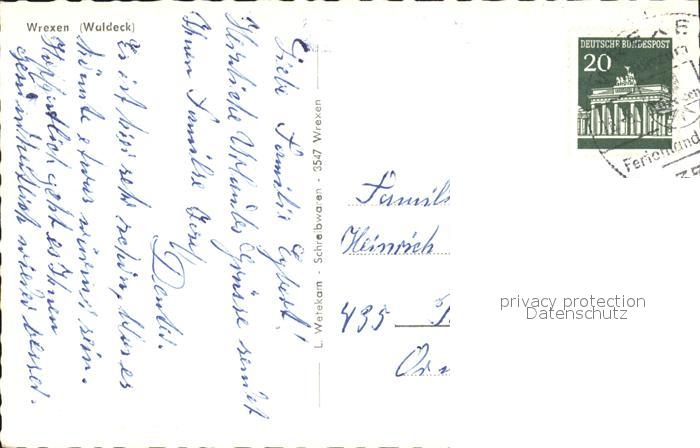 Wrexen (Waldeck)
Liebe Familie Eybert!
Herzliche Urlaubs Grüsse sendet
Ihnen Familie Josef
Es ist hier sehr schön, blos es
könnte etwas wärmer sein.
Hoffentlich geht es Ihnen
gesundheitlich wieder besser.
L. Wetekam - Schreibwaren - 3547 Wrexen
DEUTSCHE BUNDESPOST
20
Ferienland
Famili
Heinrich
435
privacy protection
Datenschutz